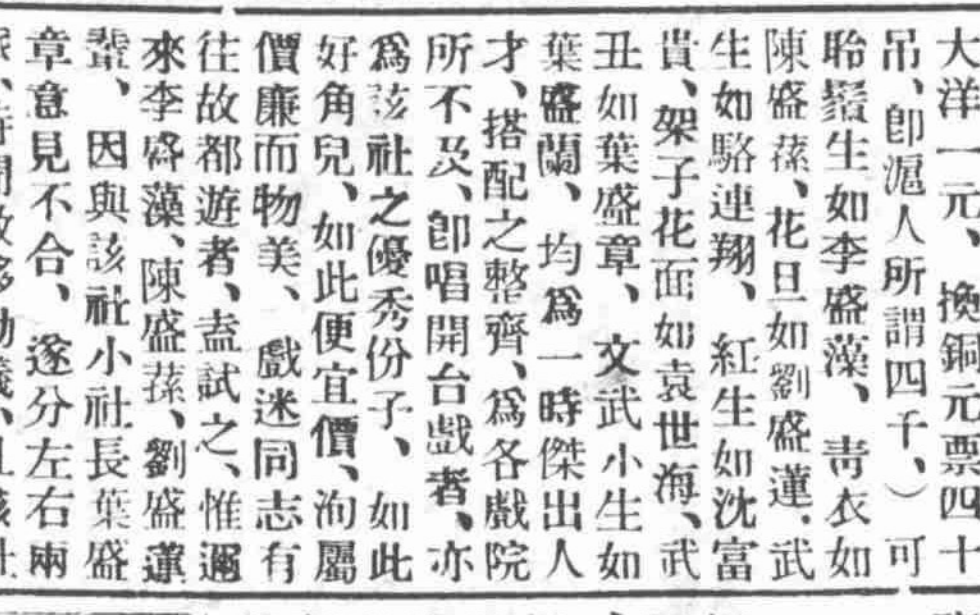 大洋一元、換銅元票四十
吊、卽滬人所謂四千、）可
聆鬚生如李盛藻、靑衣如
陳盛蓀、花旦如劉盛蓮、武
生如駱連翔、紅生如沈富
貴、架子花面如袁世海、武
丑如葉盛章、文武小生如
葉盛蘭、均爲一時傑出人
才、搭配之整齊、爲各戲院
所不及、卽唱開台戲者、亦
爲該社之優秀份子、如此
好角兒、如此便宜價、洵屬
價廉而物美、戲迷同志有
往故都遊者、盍試之、惟邇
來李盛藻、陳盛蓀、劉盛蓮
輩、因與該社小社長葉盛
章意見不合、遂分左右兩